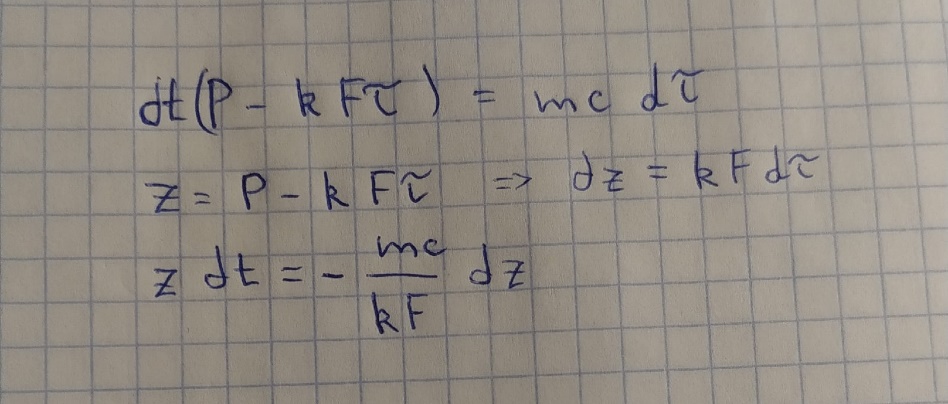 dt(P - k Fτ) = mc dτ
z = P - k Fτ => dz = k F dτ
z dt = - mc/kF dz